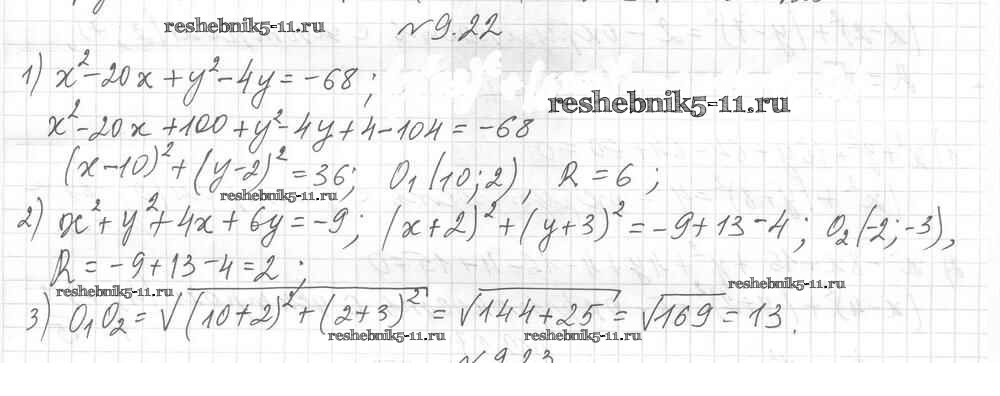 reshebnik5-11.ru
№9.22
1) x²-20x+y²-4y=-68;
reshebnik5-11.ru
x²-20x+100+y²-4y+4-104=-68
(x-10)²+(y-2)²=36; O₁(10;2), R=6;
reshebnik5-11.ru
2) x²+y²+4x+6y=-9; (x+2)²+(y+3)²=-9+13-4; O₂(-2;-3),
R=-9+13-4=2;
reshebnik5-11.ru
reshebnik5-11.ru
3) O₁O₂=√((10+2)²+(2+3)²)=√144+25=√169=13.
reshebnik5-11.ru
reshebnik5-11.ru
№9.23